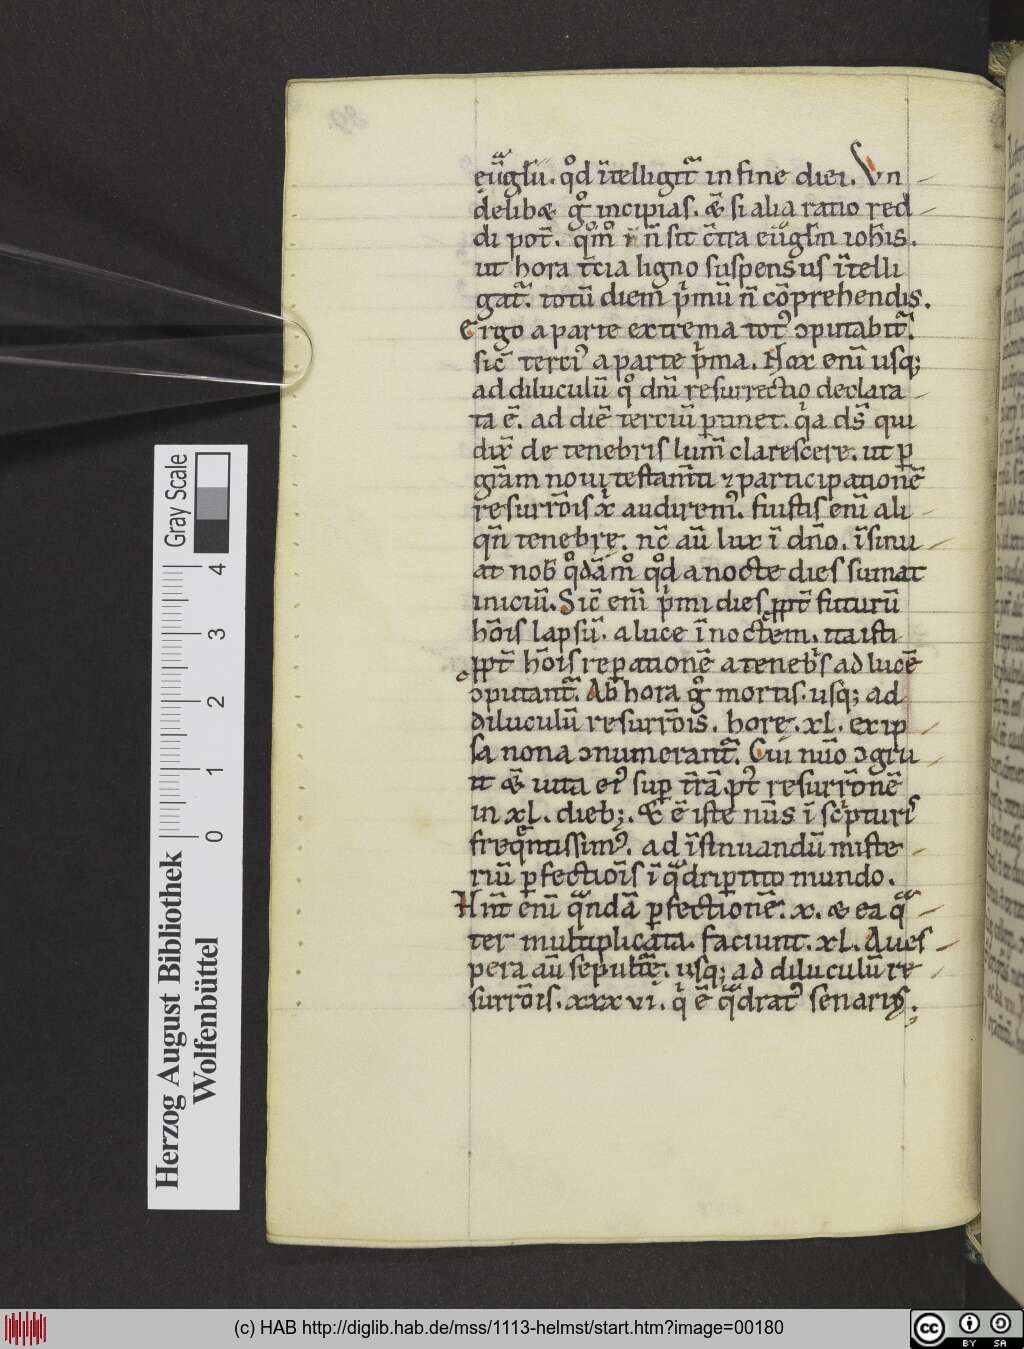 euᷓgl̄iū. qͦd ītelligit᷑ in fine diei. Vn
delibæ gͦ incipias. & si alia ratio red
di pot̄. qm̊ ñ sit c̄tra euᷓgl̄m ioh̄is.
ut hora t̄cia ligno suspensus ītelli
gat᷑. totū diem p̍mū ñ cōprehendis.
Ergo a parte extrema totꝰ ↄputabit᷑.
sic̄ terciꝰ a parte p̍ma. Nox enī usq;
ad diluculū qͦ dn̄i resurrectio declara
ta ē. ad diē terciū ꝑtinet. q̍a ds̄ qui
dix̄ de tenebris lum̄ clarescere. ut ꝑ
gr̄am noui testam̄ti ⁊ participationē
resurr̄ois x̍ audiremꝰ. fuistis enī ali
qn̄ tenebrę. nc̄ aū lux ī dn̄o. īsinu
at nob̄ qͦdāmͦ qͦd a nocte dies sumat
iniciū. Sic̄ enī p̍mi dies ꝓpt̄ futurū
hōis lapsū. a luce ī noctem. ita isti
ꝓpt̄ hōis reꝑationē a teneb̍s ad lucē
ↄputant᷑. Ab hora gͦ mortis. usq; ad
diluculū resurr̄ois. horę. xl. ex ip
sa nona ↄnumerant᷑. Cui nūo ↄgru
it & uita eiꝰ suꝑ t̄rā p̄t resurr̄onē
in xl. dieb;. & ē iste nūs ī sc̍pturis
freqͤntissimꝰ. ad īsinuandū miste
riū ꝑfectiōis ī qᷓdriꝑtito mundo.
Hn̄t enī qᷓndā ꝑfectionē. x. & ea qᷓ
ter multiplicata. faciunt. xl. A ues
pera aū sepultᷓę. usq; ad diluculū re
surr̄ois. xxxvi. q̍ ē qᷓdratꝰ senariꝰ.
Gray Scale
0 1 2 3 4
Herzog August Bibliothek
Wolfenbüttel
(c) HAB http://diglib.hab.de/mss/1113-helmst/start.htm?image=00180
cc BY SA